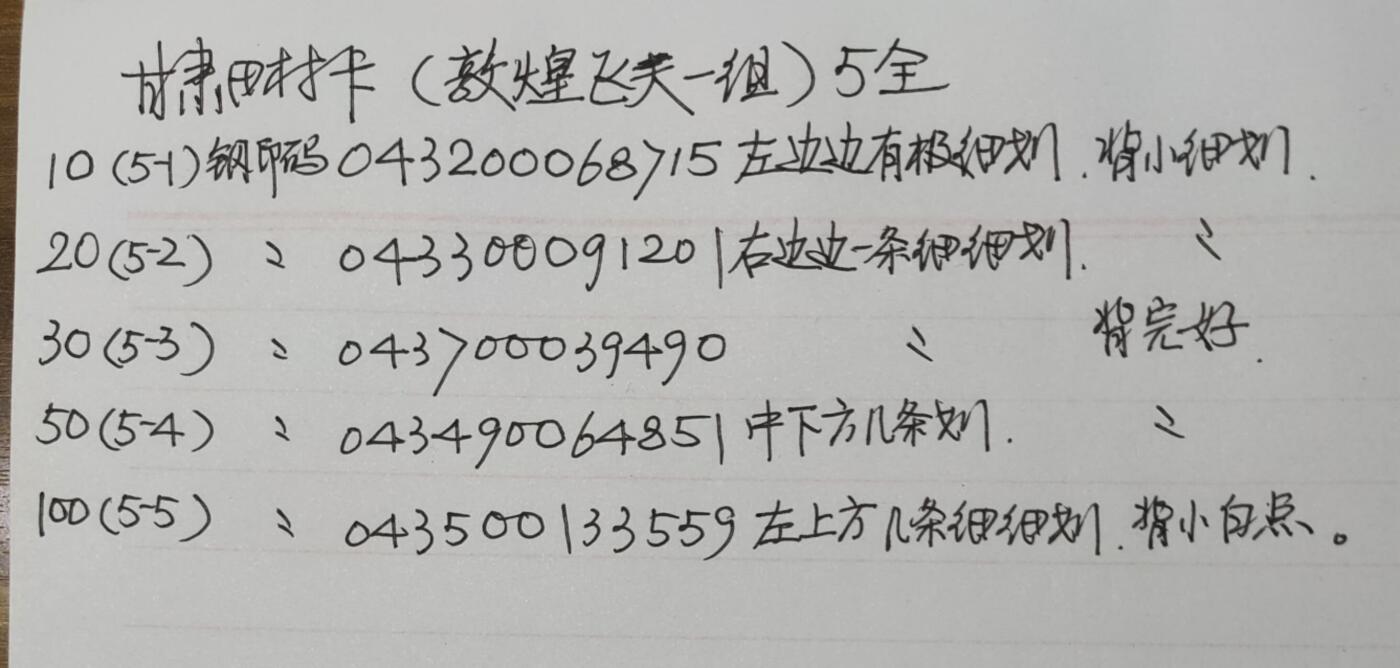 甘肃田村卡（敦煌飞天一组）5全
10（5-1）钢印码043200068715左边边有极细划.背小细划.
20（5-2）〃043300091201右边边一条细细划.〃
30（5-3）〃043700039490〃背完好.
50（5-4）〃043490064851中下方几条划.〃
100（5-5）〃043500133559左上方几条细细划.背小白点。